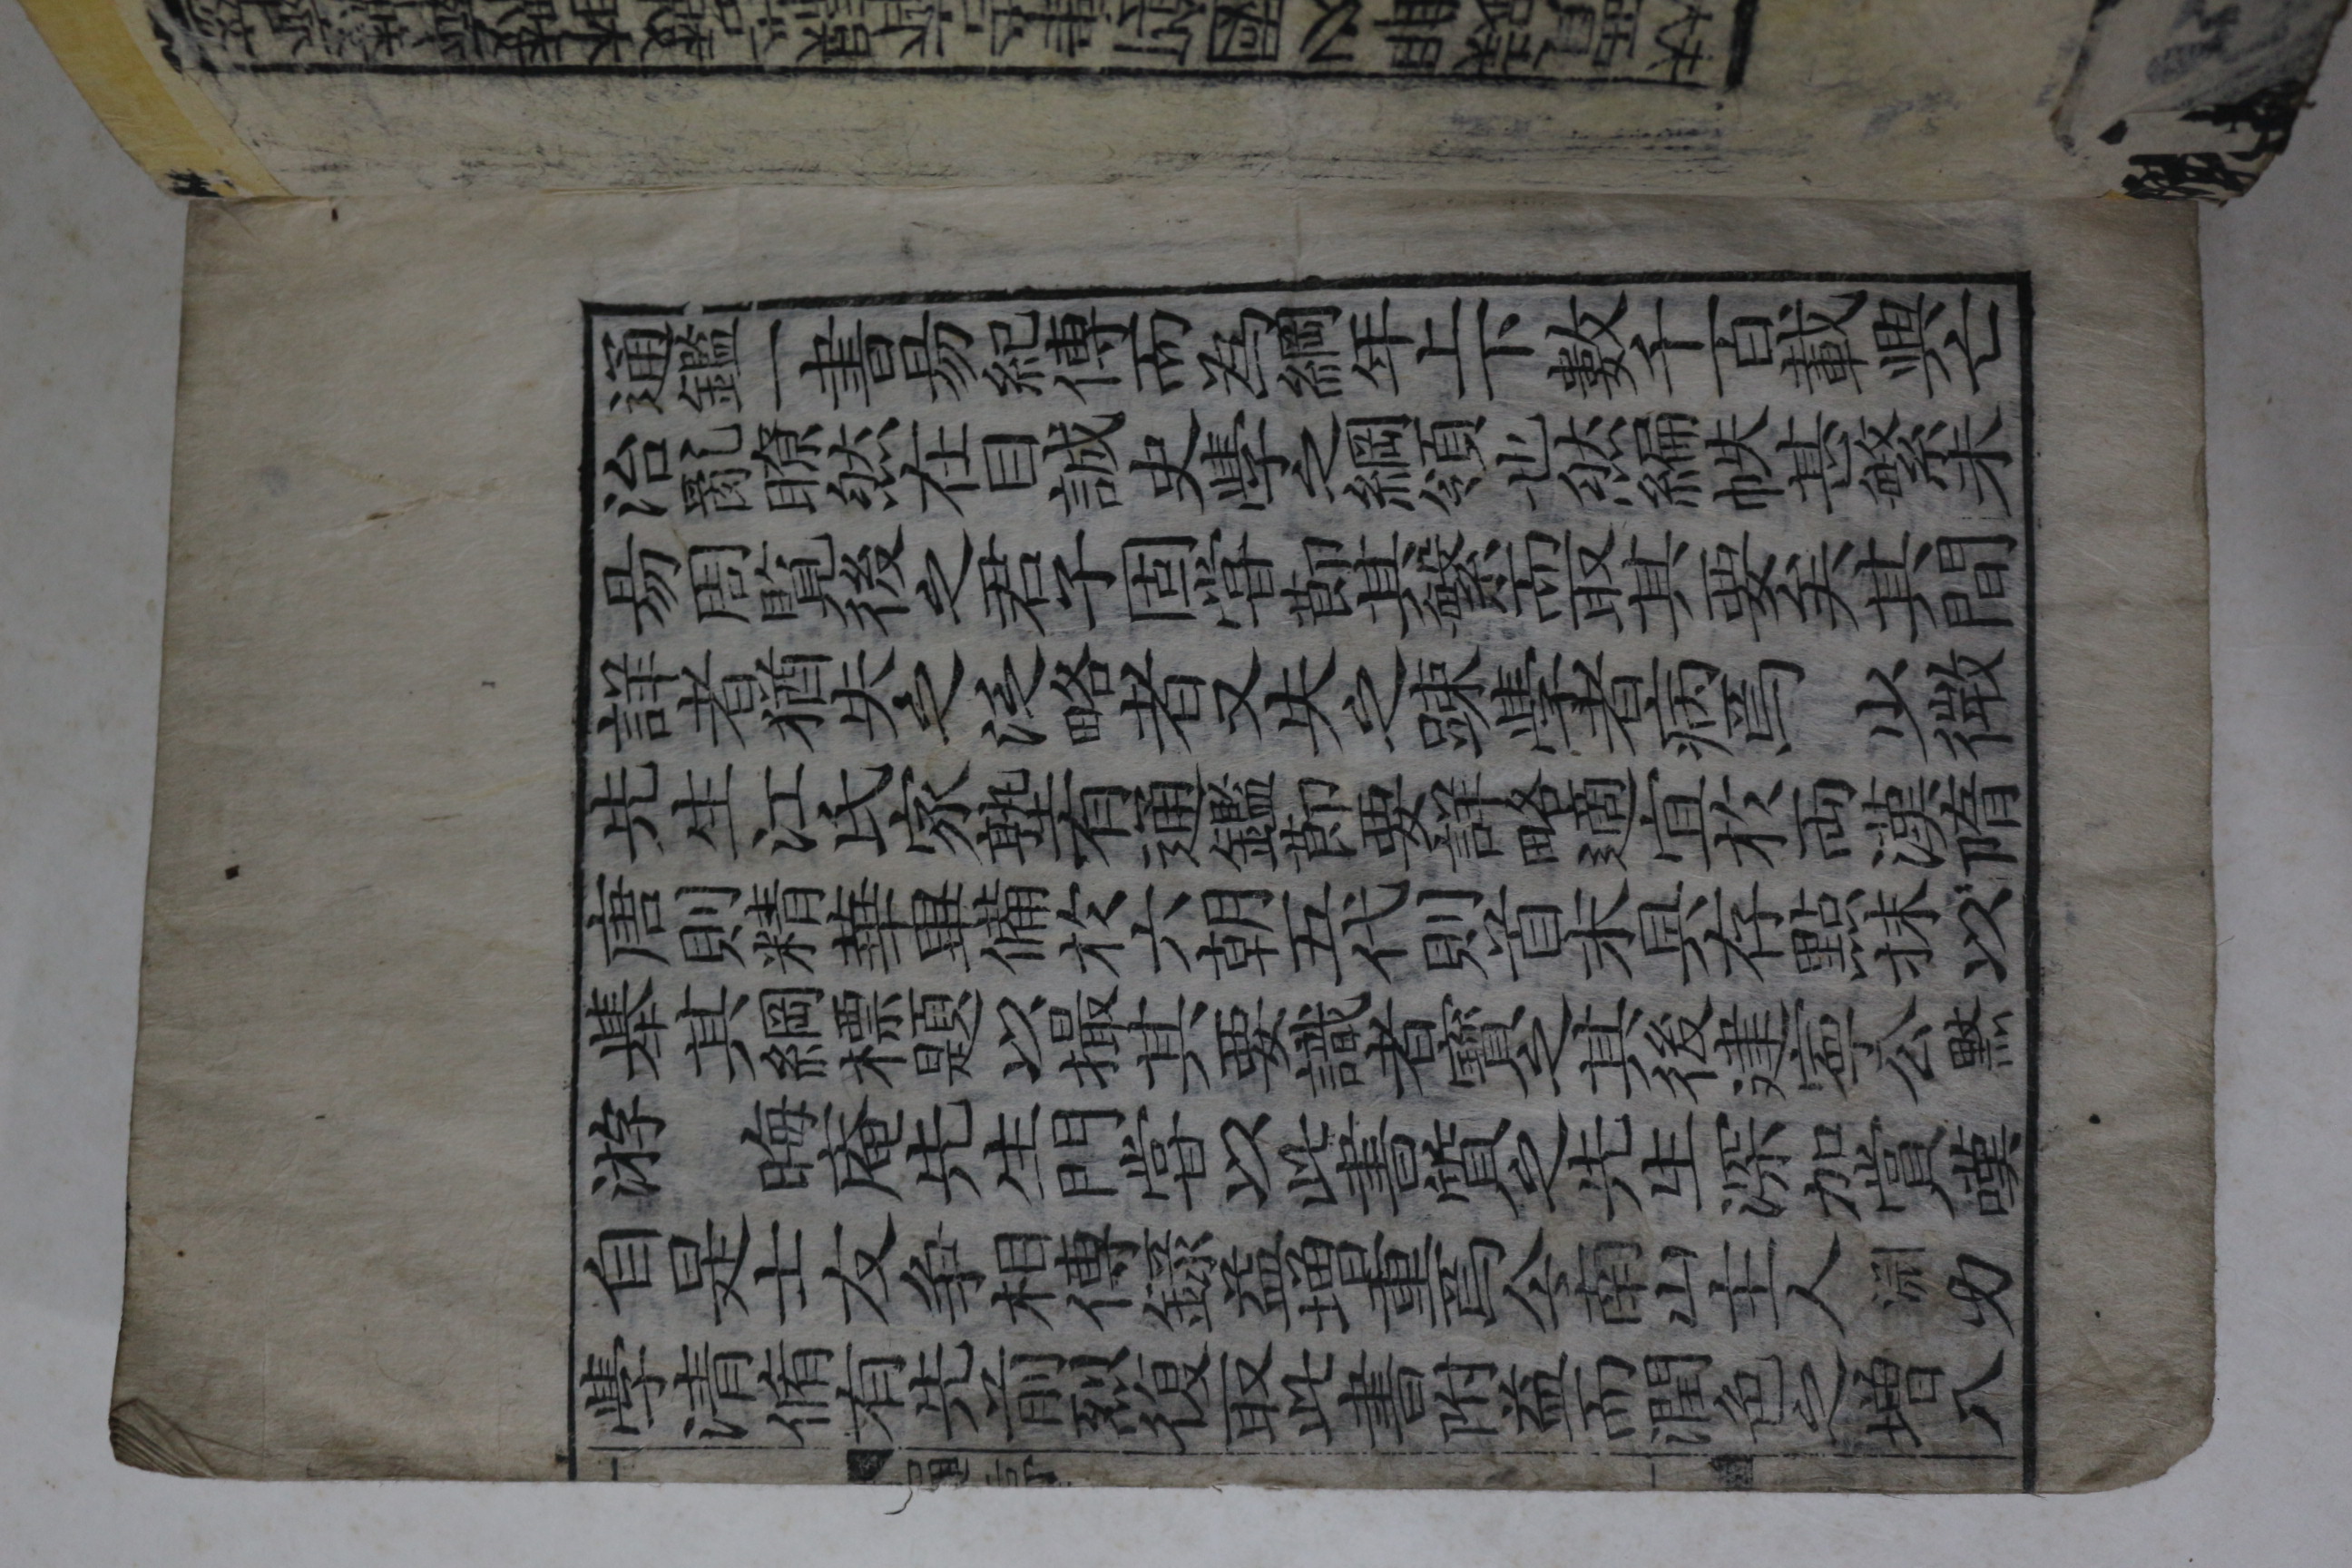 通鑑一書易紀傳而為編年上下數千百載興亡
治亂瞭然在目誠史學之綱領也然編帙甚繁未
易周覽後之君子固嘗節其繁而取其要矣其間
詳者猶失之泛略者又失之踈學者病焉 少微
先生江氏家塾有通鑑節要詳略適宜於兩漢隋
唐則精華畢備於六朝五代則首末具存點抹以
舉其綱標題以撮其要識者寶之其後建寧公默
游 晦庵先生門嘗以此書質之先生深加賞嘆
自是士友爭相傳錄益增重焉今南山主人淵力
學清脩有先前烈復取此書附益而潤色之增入